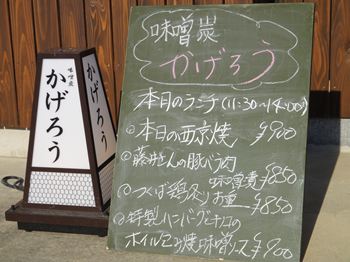 味噌炭
かげろう
本日のランチ(11:30〜14:00)
本日の西京焼 ¥900
藤井さんの豚バラ肉
味噌煮 ¥850
つくば鶏炙り お重 ¥850
特製ハンバーグとナスの
ホイル包み焼味噌ソース ¥900
味噌炭
かげろう
かげろう